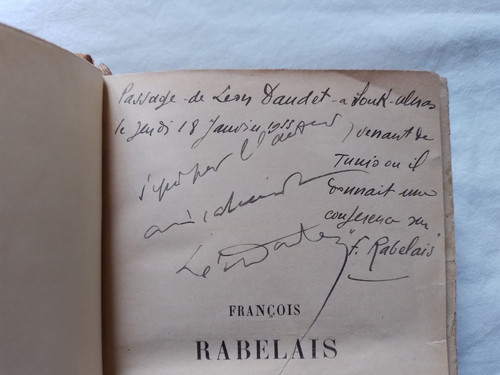 Passage de Léon Daudet a Souk-ahras
le jeudi 18 Janvier
venant de
Tunis ou il
donnait une
conference sur
"F. Rabelais"
par l'auteur
Léon Daudet
FRANÇOIS
RABELAIS